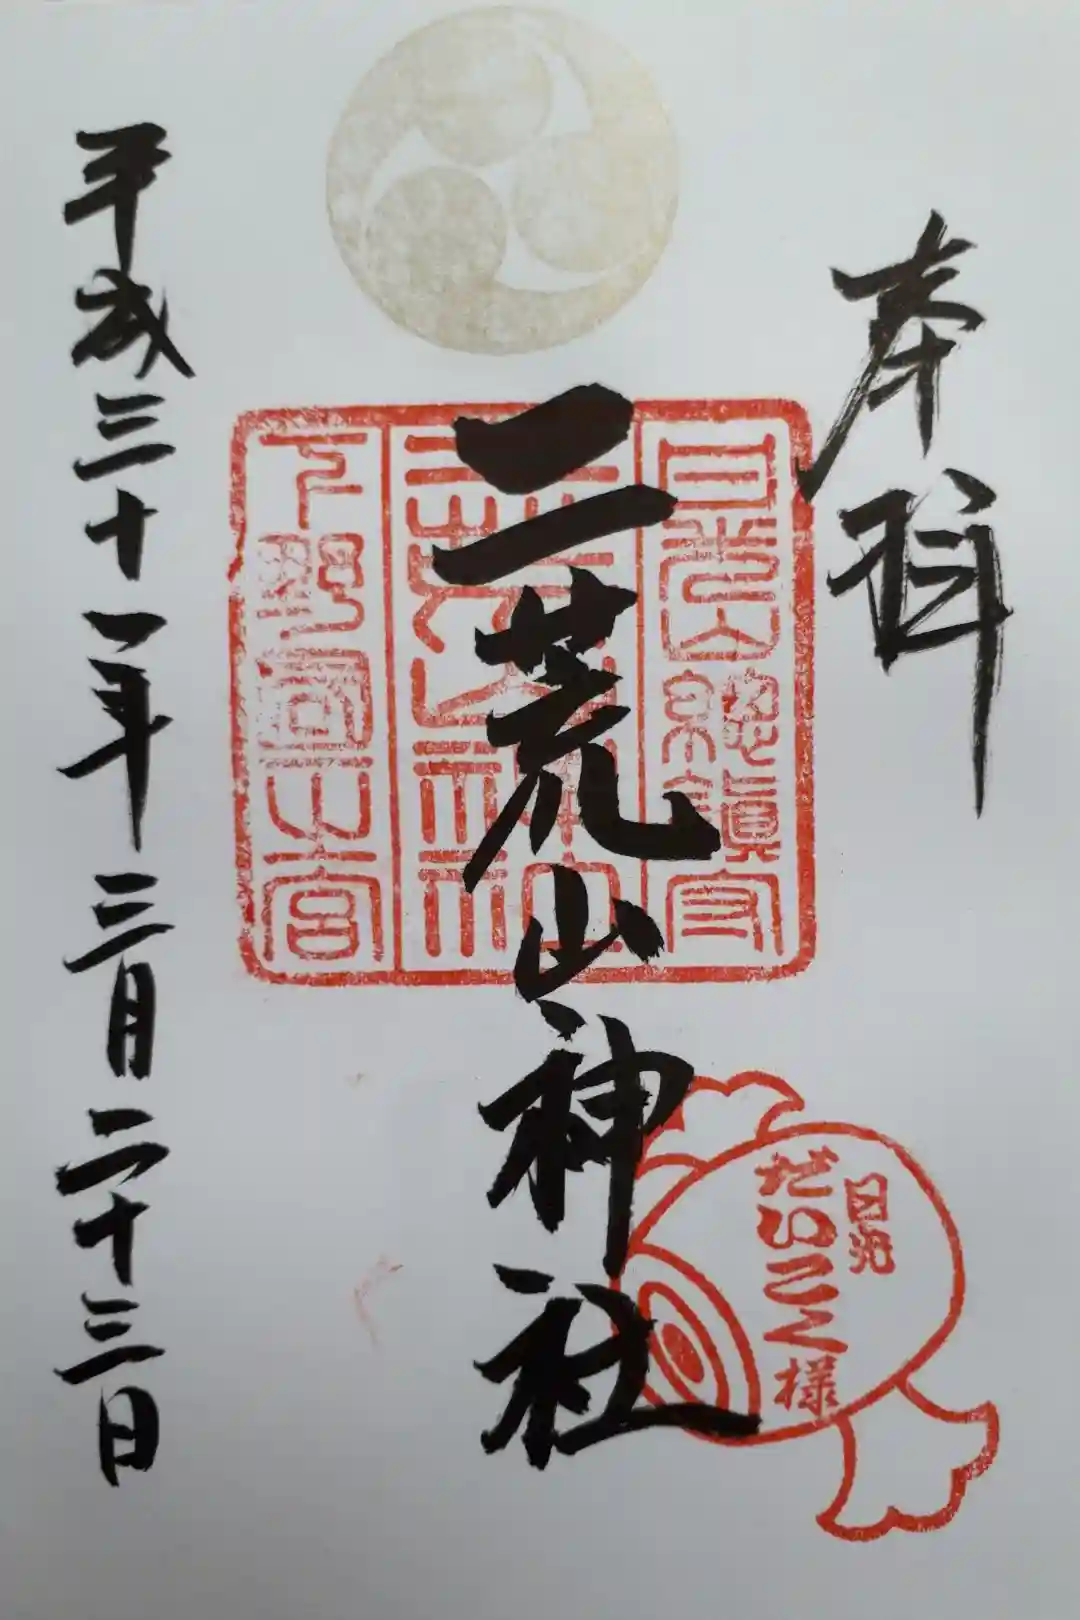 奉拝
日光山總鎮守
二荒山神社
下野國一之宮
日光
だいこく様
平成三十一年三月二十三日